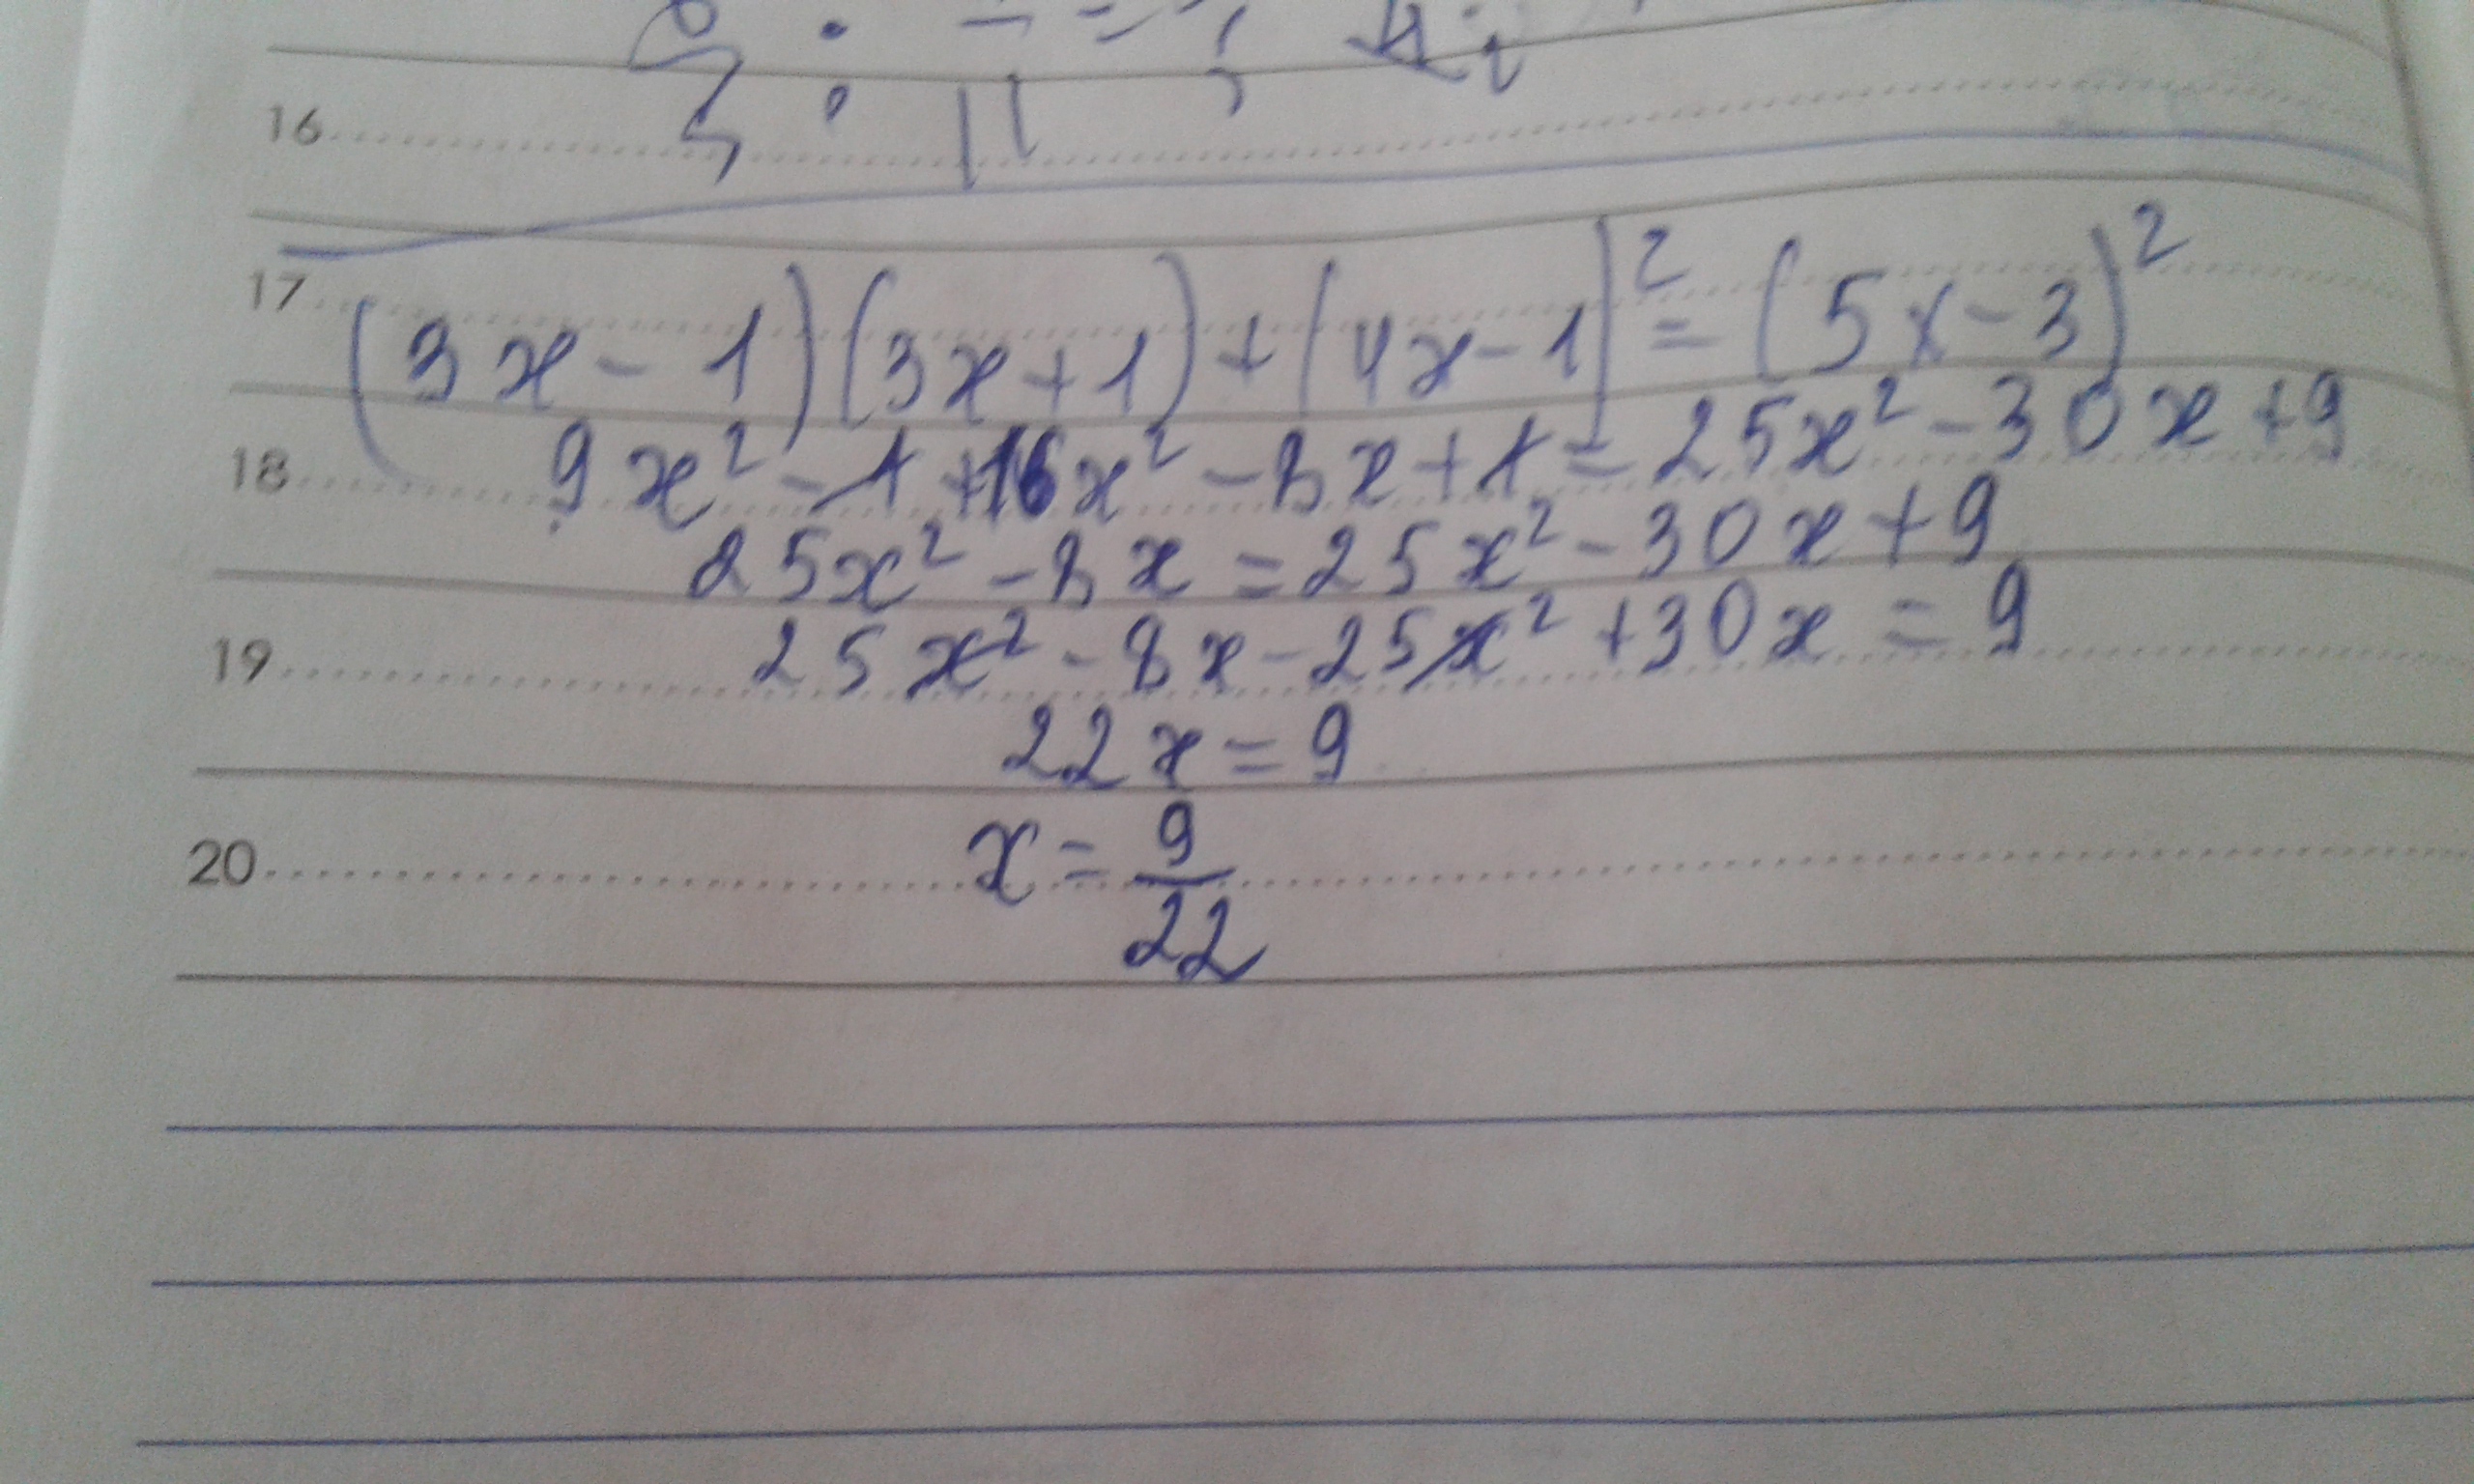 16
17 (3x-1)(3x+1)+(4x-1)²=(5x-3)²
18 9x²-1+16x²-8x+1=25x²-30x+9
25x²-8x=25x²-30x+9
19 25x²-8x-25x²+30x=9
22x=9
20 x=9/22